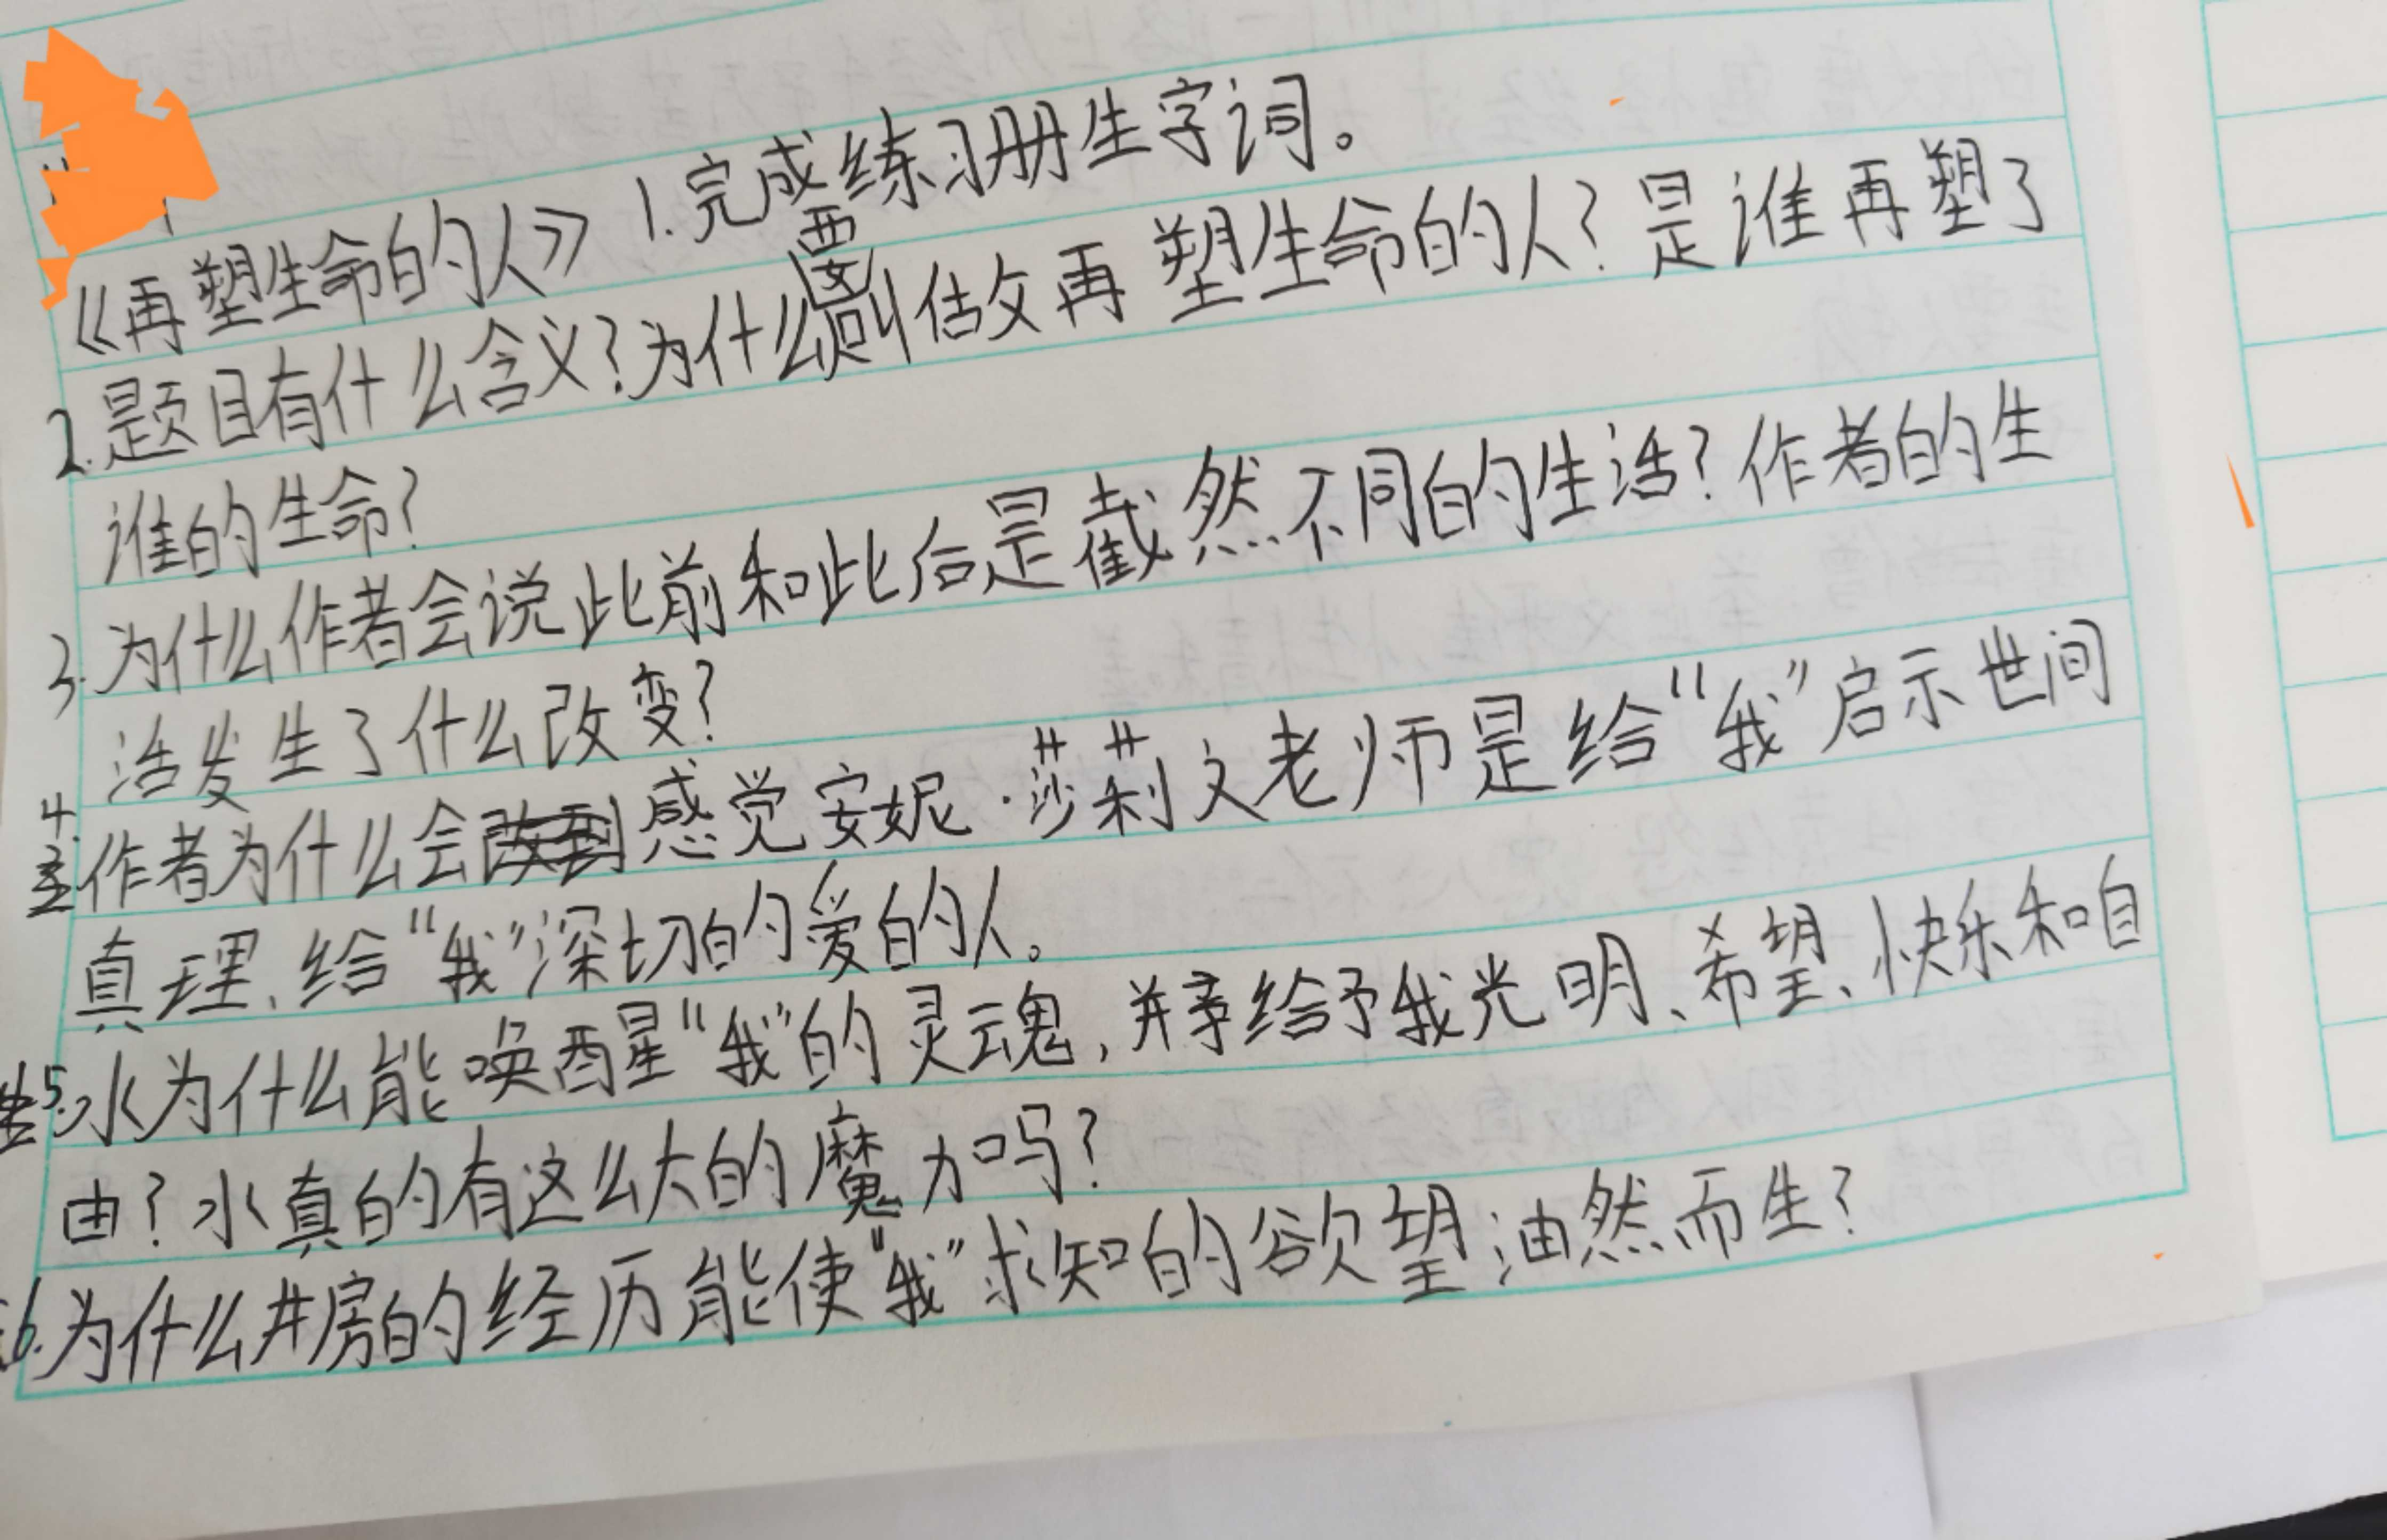 《再塑生命的人》 1.完成练习册生字词。
2.题目有什么含义?为什么要叫做再塑生命的人?是谁再塑了
谁的生命?
3.为什么作者会说此前和此后是截然不同的生活?作者的生
活发生了什么改变?
4.作者为什么会感觉安妮·莎莉文老师是给“我”启示世间
真理、给“我”深切的爱的人。
5.水为什么能唤醒“我”的灵魂,并给予我光明、希望、快乐和自
由?水真的有这么大的魔力吗?
6.为什么井房的经历能使“我”求知的欲望油然而生?